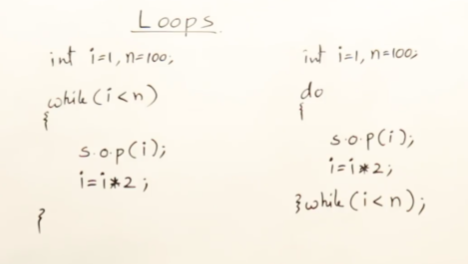 Loops
int i=1, n=100;
while(i<n)
{
s.o.p(i);
i=i*2;
}
int i=1, n=100;
do
{
s.o.p(i);
i=i*2;
}while(i<n);